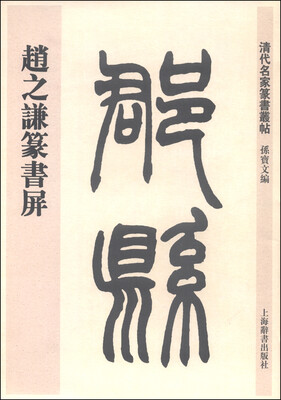 清代名家篆書叢帖
孫寶文編
上海辭書出版社
郡縣
趙之謙篆書屏